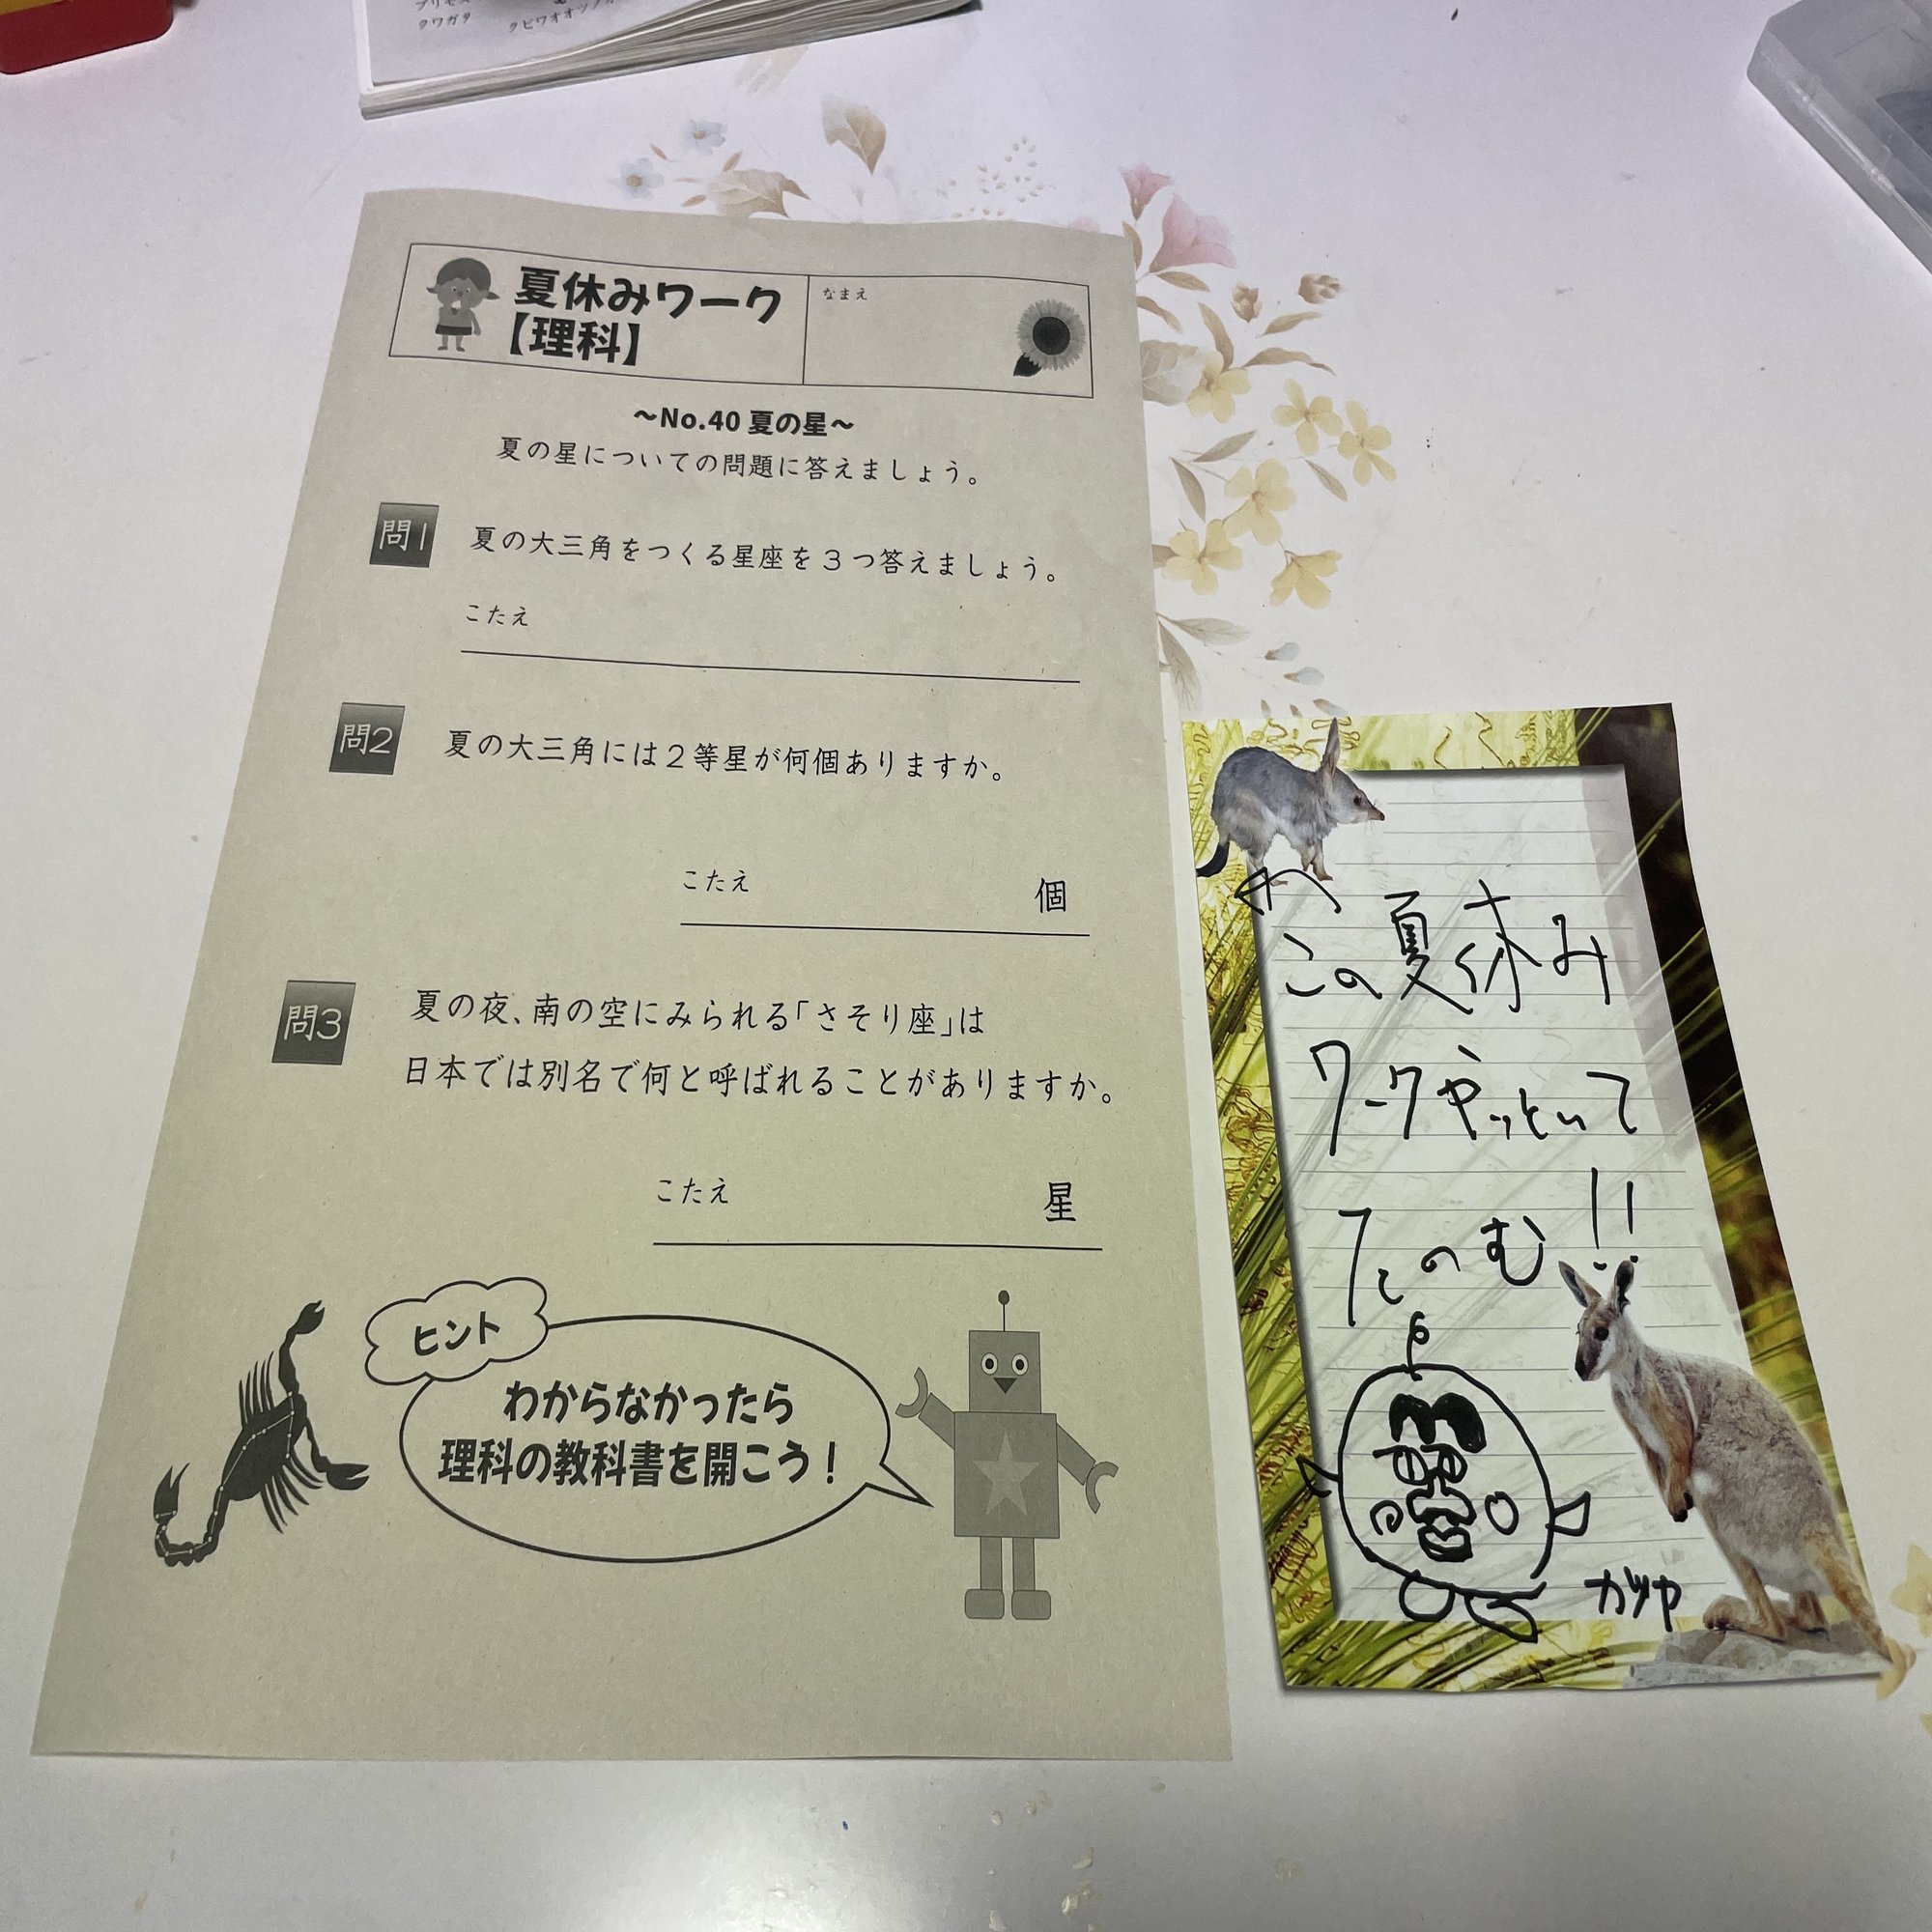 プリンセス
クワガタ
夏休みワーク
【理科】
なまえ
～No.40 夏の星～
夏の星についての問題に答えましょう。
問1
夏の大三角をつくる星座を3つ答えましょう。
こたえ
問2
夏の大三角には2等星が何個ありますか。
こたえ
個
問3
夏の夜、南の空にみられる「さそり座」は
日本では別名で何と呼ばれることがありますか。
こたえ
星
ヒント
わからなかったら
理科の教科書を開こう！
この夏休み
ワークやっといて
たのむ!!
カツヤ